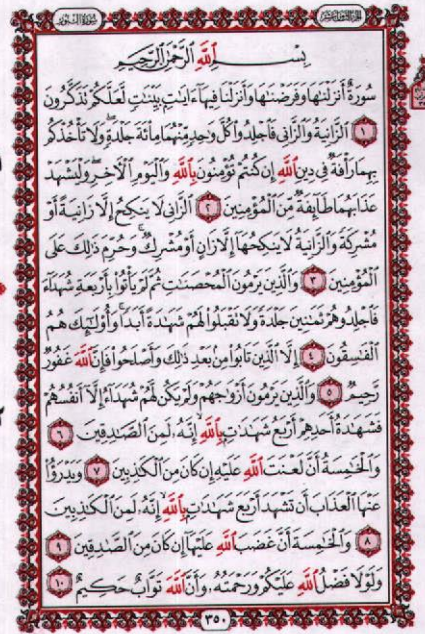 الجزء الثامن عشر
سورة النور
بِسْمِ اللَّهِ الرَّحْمَنِ الرَّحِيمِ
سُورَةٌ أَنزَلْنَاهَا وَفَرَضْنَاهَا وَأَنزَلْنَا فِيهَا ءَايَاتٍ بَيِّنَاتٍ لَّعَلَّكُمْ تَذَكَّرُونَ
١ الزَّانِيَةُ وَالزَّانِي فَاجْلِدُوا كُلَّ وَاحِدٍ مِّنْهُمَا مِائَةَ جَلْدَةٍ وَلَا تَأْخُذْكُم
بِهِمَا رَأْفَةٌ فِي دِينِ اللَّهِ إِن كُنتُمْ تُؤْمِنُونَ بِاللَّهِ وَالْيَوْمِ الْآخِرِ وَلْيَشْهَدْ
عَذَابَهُمَا طَائِفَةٌ مِّنَ الْمُؤْمِنِينَ ٢ الزَّانِي لَا يَنكِحُ إِلَّا زَانِيَةً أَوْ
مُشْرِكَةً وَالزَّانِيَةُ لَا يَنكِحُهَا إِلَّا زَانٍ أَوْ مُشْرِكٌ وَحُرِّمَ ذَلِكَ عَلَى
الْمُؤْمِنِينَ ٣ وَالَّذِينَ يَرْمُونَ الْمُحْصَنَاتِ ثُمَّ لَمْ يَأْتُوا بِأَرْبَعَةِ شُهَدَاءَ
فَاجْلِدُوهُمْ ثَمَانِينَ جَلْدَةً وَلَا تَقْبَلُوا لَهُمْ شَهَادَةً أَبَدًا وَأُولَئِكَ هُمُ
الْفَاسِقُونَ ٤ إِلَّا الَّذِينَ تَابُوا مِن بَعْدِ ذَلِكَ وَأَصْلَحُوا فَإِنَّ اللَّهَ غَفُورٌ
رَّحِيمٌ ٥ وَالَّذِينَ يَرْمُونَ أَزْوَاجَهُمْ وَلَمْ يَكُن لَّهُمْ شُهَدَاءُ إِلَّا أَنفُسُهُمْ
فَشَهَادَةُ أَحَدِهِمْ أَرْبَعُ شَهَادَاتٍ بِاللَّهِ إِنَّهُ لَمِنَ الصَّادِقِينَ ٦
وَالْخَامِسَةُ أَنَّ لَعْنَتَ اللَّهِ عَلَيْهِ إِن كَانَ مِنَ الْكَاذِبِينَ ٧ وَيَدْرَؤُا
عَنْهَا الْعَذَابَ أَن تَشْهَدَ أَرْبَعَ شَهَادَاتٍ بِاللَّهِ إِنَّهُ لَمِنَ الْكَاذِبِينَ
٨ وَالْخَامِسَةَ أَنَّ غَضَبَ اللَّهِ عَلَيْهَا إِن كَانَ مِنَ الصَّادِقِينَ ٩
وَلَوْلَا فَضْلُ اللَّهِ عَلَيْكُمْ وَرَحْمَتُهُ وَأَنَّ اللَّهَ تَوَّابٌ حَكِيمٌ ١٠
٣٥٠